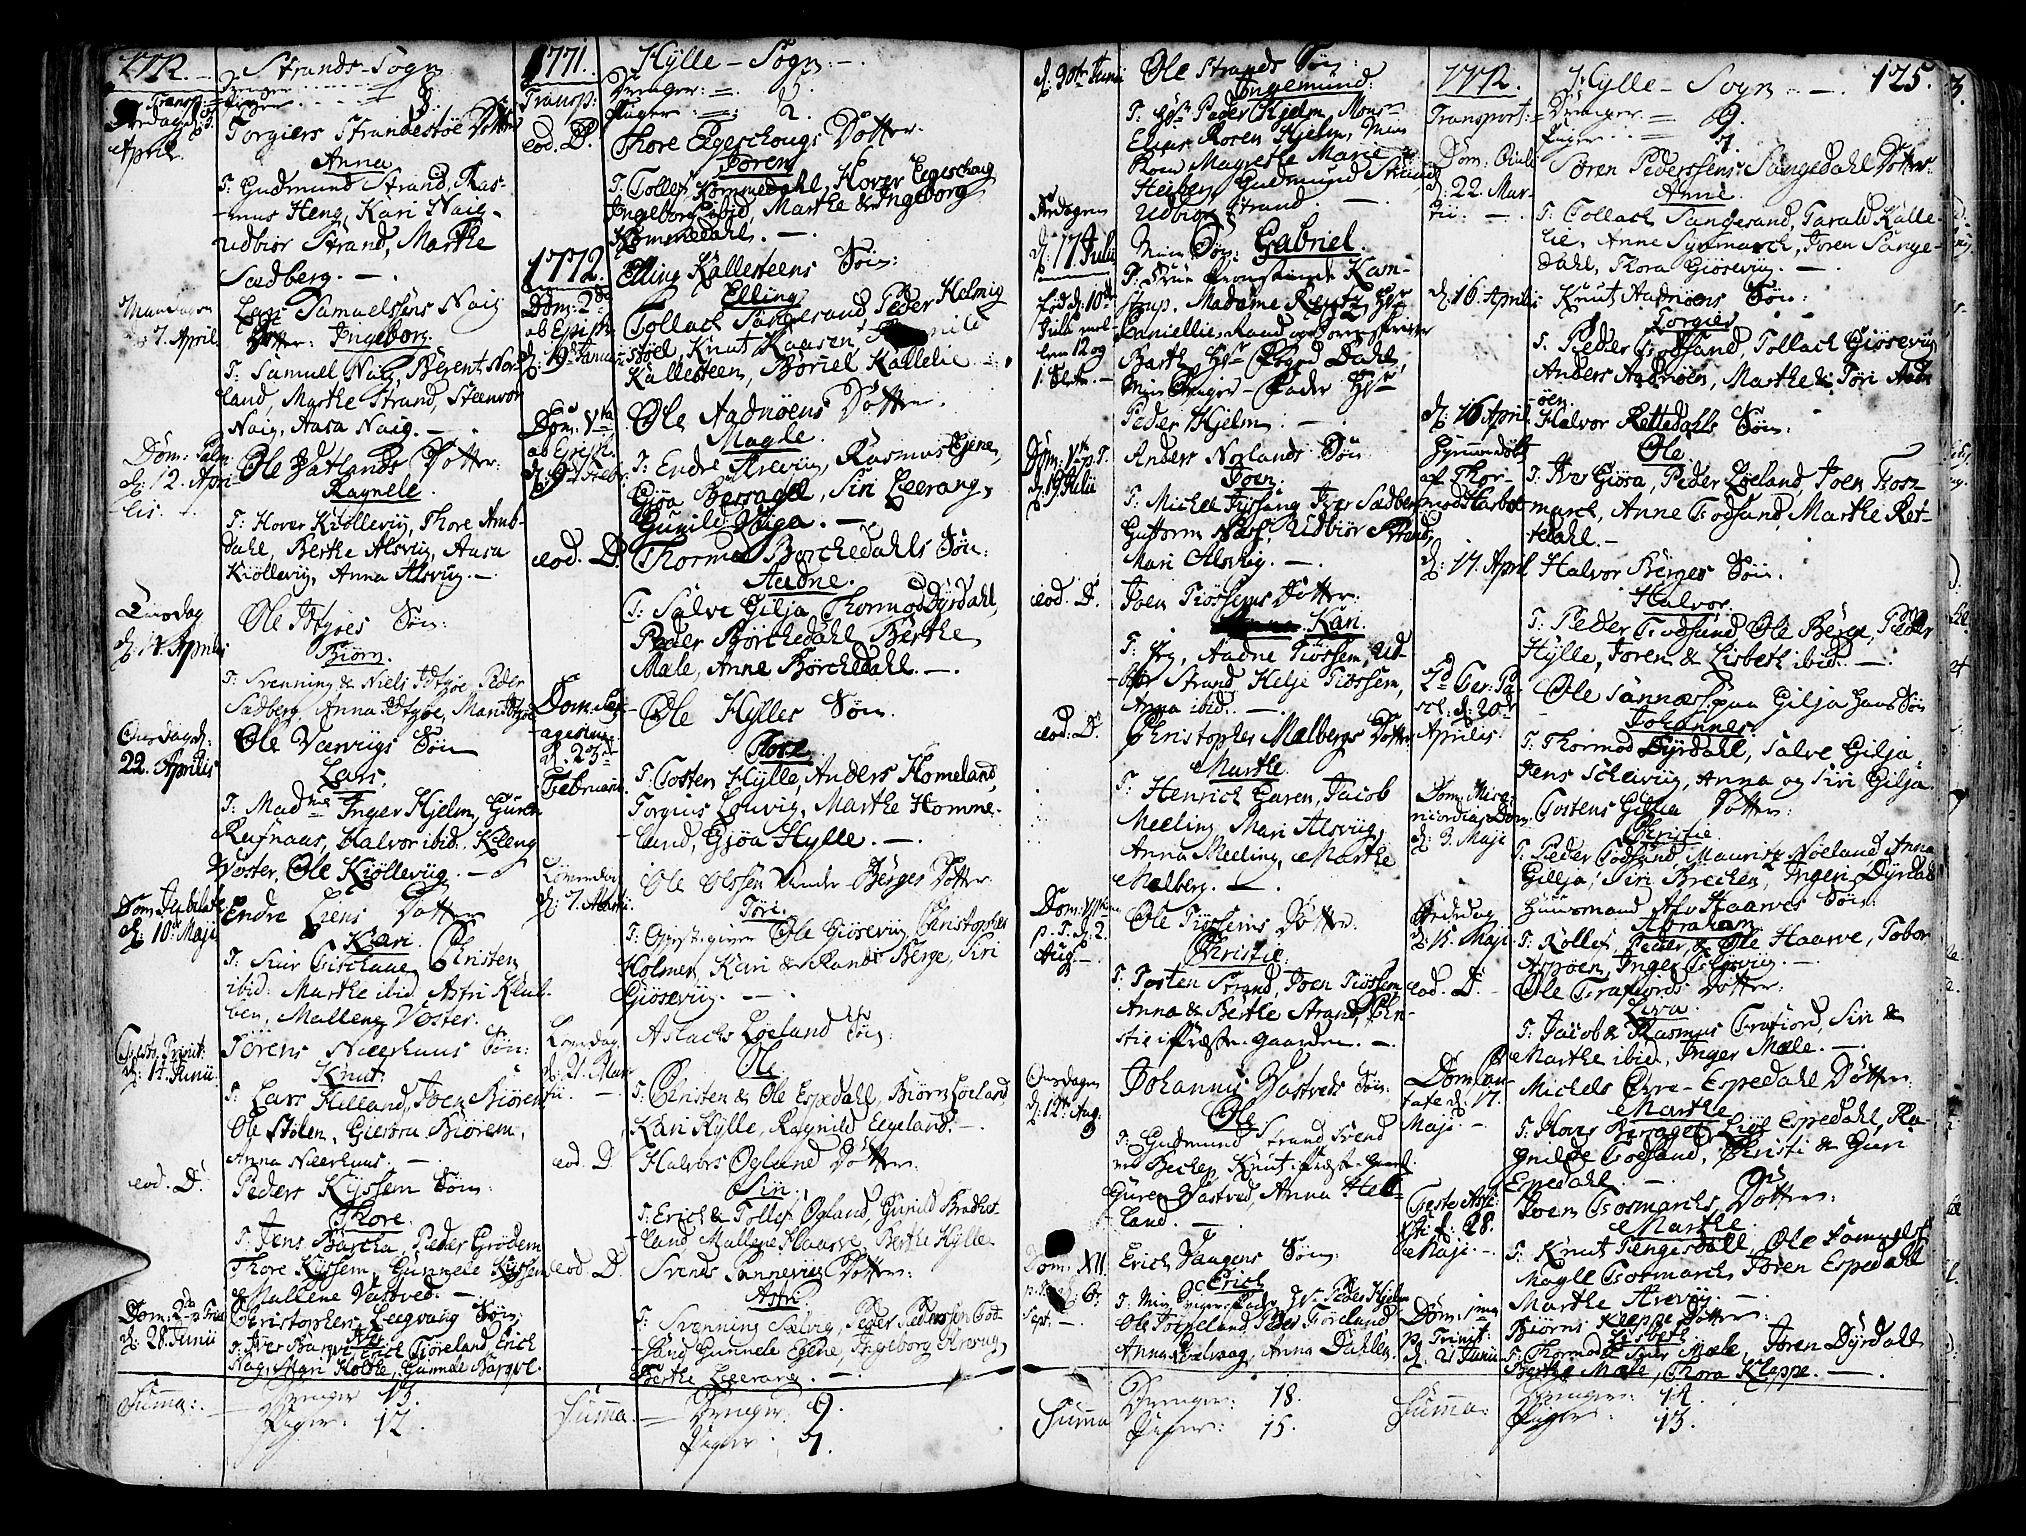 1772. Strands-Sogn
Transp: Drenger 8.
Piger
d. 5.
April.
Torgiers Strandestøe Dotter
Anna
T: Gudmund Strand, Ras-
mus Heng, Kari Naig
Udbiør Strand, Marthe
Sædberg. —
Mandagen
7 April
Lars Samuelsens Naig
Dotter: Ingeborg.
T: Samuel Naig, Berent Nor-
land, Marthe Strand, Steenvor
Naig, Aasa Naig. —
Dom: Palm
d. 12. Apri-
lis.
Ole Vatlands Dotter:
Ragnele.
T: Hover Kiøllevig, Thore Amb-
dahl, Berthe Alsvig, Aasa
Kiøllevig, Anna Alsvig. —
Tirsdag
d. 14 Aprilis
Ole Idsøes Søn:
Biørn.
T: Svenning & Niels Idsøe, Peder
Sædberg, Anna Idsøe, Mari Idsøe
Onsdag d:
22. Aprilis
Ole Værvigs Søn
Lars.
T: Madme Inger Hjelm, Guren
Rufnaas, Halvor ibid., Killeng
Voster, Ole Kiøllevig. —
Dom: Jubilate
d. 10de Maji
Endre Liens Dotter
Kari.
T: Siur Tischaue, Christen
ibid: Marthe ibid, Astri Klub-
ben, Malleng Voster.
Festo Trinit:
d. 14 Junii.
Sørens Nærhuus Søn:
Knut.
T: Lars Killand, Joen Biørem
Ole Stølen, Giertru Biørem,
Anna Nærhuus. —
eod. D.
Peders Kyssem Søn:
Thore.
T: Jens Barcka, Peder Grødem
Thore Kyssem, Gunnele Kyssem
& Mallene Vastved. —
Dom: 2da p Trin
d. 28 Junii
Christophers Leegvang Søn:
Iver
T: Iver Barqve, Erich Tiøreland, Erich
Nag, Mari Holthe, Gunnele Barqve.
Summa: Drenger 13.
Piger: 12.
1771. Hylle-Sogn —
Transp: Drenger: 8.
Piger 2.
eod. D.
Thore Egeschougs Dotter:
Søren
T: Tollef Kommedahl, Hover Egeschoug
Ingeborg ibid, Marthe & Ingeborg
Kommedahl. —
1772.
Dom: 2da
ab Epiph
d. 19 Janua
Elling Kallesteens Søn:
Elling
Tollach Sangesand, Peder Helmig
støel, Knut Haasen
Kallesteen, Børiel Kallelie
Dom: Vta
ab Epiph.
d. 9de Febr
Ole Aadnøens Dotter.
Magle.
T: Endre Arevig, Rasmus Egene,
Gjøa Berraget, Siri Leerang,
Gunild Viga. —
eod. D.
Thormo Børchedahls Søn:
Aadne.
T: Salve Gilja, Thormod Dyrdahl,
Peder Børchedahl, Berthe
Mæle, Anne Børchedahl. —
Dom: Sexa-
agesima
d. 23de
Februarii
Ole Hylles Søn.
Thore
T: Tosten Hylle, Anders Homeland,
Torgius Løvvig, Marthe Homme-
land, Gjøa Hylle. —
Løverdag
d. 7. Martii
Ole Olssen Under Berges Dotter.
Tøri.
T: Ole Giøsevig, Christopher
Holmen, Kari & Randi Berge, Siri
Giøsevig. —
Løverdag
d. 21. Mar-
tii. —
Aslachs Løeland Søn:
Ole
T: Christen & Ole Espedahl, Biørn Løeland,
Kari Hylle, Ragnild Eegeland. —
eod. D.
Halvors Ogland Dotter:
Siri.
T: Erich & Tollef Ogland, Gunild Brathet
land, Mallene Haarve, Berthe Hylle
eod. D.
Svends Tonnevigs Dotter:
Astri
T: Svenning Sælvig, Peder Pederssen Fod-
sand, Gunnele Egene, Ingeborg Arevig,
Berthe Leerang. —
Summa. Drenger: 9.
Piger: 7.
d. 30te Junii
Ole Strands Søn:
Ingemund.
T: Hr Peder Hjelm, Monsr
Elias Rosen Hjelm, Min
Kone Magrethe Marie
Heiberg, Gudmund Strand
Udbiør Strand. —
Fredagen
d: 17 Julii
Fød d: 10de
Julii mel-
lem 12 og
1. Slet. —
Min Søn: Gabriel.
T: Frue Provstinde Kam-
strup, Madame Rentz, Hr
Cancellie-Raad og Sorenskriver
Barth, Hr Obrod Dahl,
Min Svoger-Fader Hr
Peder Hjelm.
Dom: V. p. T.
d. 19 Julii
Anders Norlands Søn
Joen.
T: Michel Fissang, Iver Sædberg,
Guttorm Næs, Udbiør Strand,
Mari Alsvig. —
eod. D.
Joen Tiøssems Dotter:
Kari.
T: Aadne Tiøssem, Ud-
biør Strand, Helje Tiøssem,
Anna ibid. —
eod: D:
Christophers Mælbergs Dotter
Marthe.
T: Henrich Garen, Jacob
Meeling, Mari Alsvig,
Anna Meeling, Marthe
Mælberg. —
Dom: VII
p. T. d. 2.
Aug. —
Ole Tiøssems Dotter.
Christie.
T: Tosten Strand, Joen Tiøssem
Anna & Berthe Strand, Chri-
sti i Præste-gaarden. —
Onsdagen
d. 12te Aug.
Johannis Vastveds Søn:
Ole
T: Gudmund Strand, Svend
Knut i Præste-Gaard.
Guren Vastved, Anna Hel-
land. —
Dom: XII
p. T. d. 6.
Sept. —
Erich Vaagens Søn:
Erich
T: Min Sviger-Fader Hr Peder Hjelm
Ole Tiøreland, Peder Tiøreland
Anna Solvaag, Anna Dahlen.
Summa Drenger: 18.
Piger: 15.
1772. Hylle-Sogn — 125.
Transport: Drenger 9.
Piger 7.
Dom: Oculi
d: 22. Mar-
tii: —
Søren Pederssens Sangedahl Dotter.
Anne.
T: Tollach Sangesand, Tarald Kalle-
lie, Anne Synmarch, Joren Sange-
dahl, Thora Giøsevig. —
d. 16. Aprilis
Knut Aadnøens Søn:
Torgier
T: Peder Fodsand, Tollach Giøsevig
Anders Aadnøen, Marthe & Tøri Aadn
øen.
d. 16 April
Halvor Rettedahls Søn:
Ole.
T: Iver Giøsa, Peder Løeland, Joen Fros-
march, Anne Fodsand, Marthe Ret-
tedahl. —
d. 17. April
Halvor Berges Søn.
Halvor.
T: Peder Fodsand, Ole Berge, Peder
Hylle, Joren & Lisbeth ibid. —
2d Fer. Pa-
sch. d. 20de
Aprilis.
Ole Sannes paa Gilja Hans Søn
Johannes.
T: Thormod Dyrdahl, Salve Gilja
Jens Scheivig, Anna og Siri Gilja.
Dom. Mise-
ricordias Dom
d. 3. Maji
Tostens Gilja Dotter:
Christie
T: Peder Fodsand, Mauritz Noeland, Anna
Gilja, Siri Brechen, Ingeri Dyrdahl
Fredag
d. 15. Maji
Huusmand Alv Haarves Søn:
Abraham
T: Rollef, Peder & Ole Haarve, Tobor
Aspøen, Inger —
eod. D.
Ole Frafiords Dotter:
Lisa.
T: Jacob & Rasmus Frafiord, Siri &
Marthe ibid, Inger Mæle. —
Dom. Can-
tate d. 17.
Maji. —
Michels Øvre-Espedahl Dotter:
Marthe
T: Hans Berraget, Lisa Espedahl, Ra-
gnilde Fodsand, Christi & Guri
Espedahl. —
Festo Asc:
Xsti d: 28.
Maji. —
Joen Frosmarchs Dotter:
Marthe.
T: Knut Tengesdahl, Ole Samuelss
Magle Frosmarch, Joren Espedahl
Marthe Arevig. —
Dom: 5ma
p. Trinit:
d. 21 Junii
Biørns Kleppe Dotter:
Lisbeth
T: Thormod & Siur Mæle, Joren Dyrdahl
Berthe Mæle, Thora Kleppe. —
Summa: Drenger: 14.
Piger: 13.